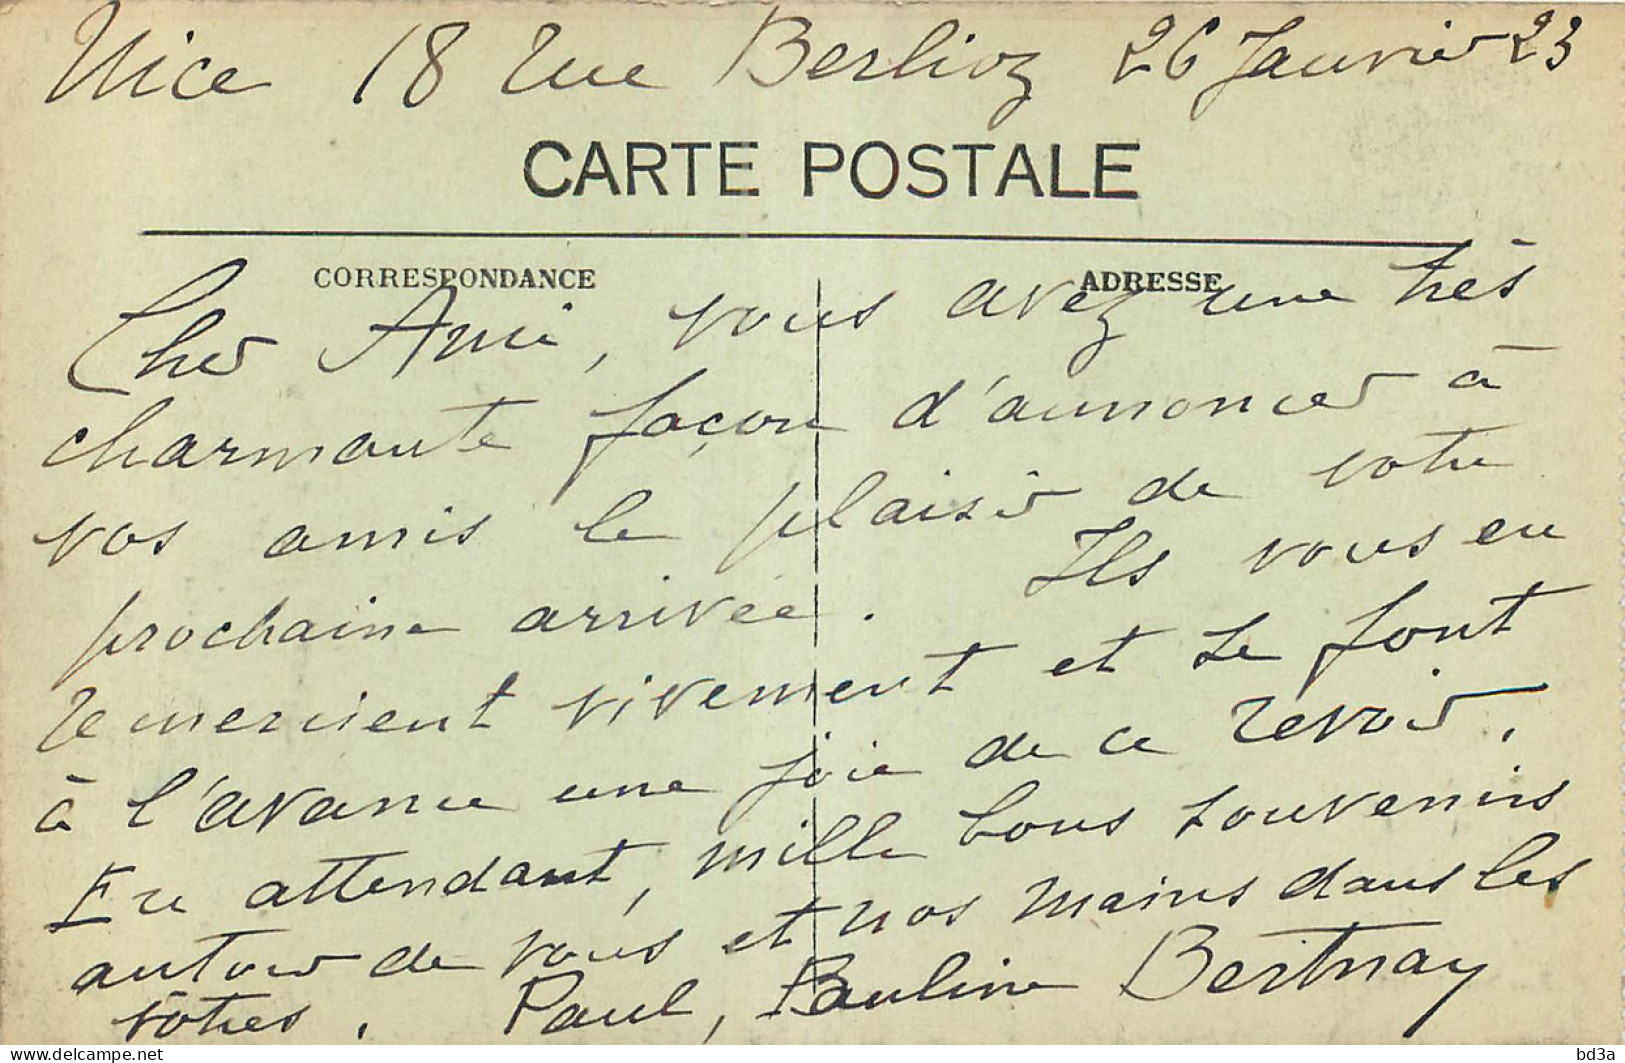 Nice 18 rue Berlioz 26 Janvier 23
CARTE POSTALE
CORRESPONDANCE
ADRESSE
Cher Ami, vous avez une très
charmante façon d'annoncer à
vos amis le plaisir de votre
prochaine arrivée. Ils vous en
remercient vivement et se font
à l'avance une joie de ce revoir.
En attendant, mille bons souvenirs
autour de vous et nos mains dans les
vôtres. Paul, Pauline Bertnay
delcampe.net
bd3a